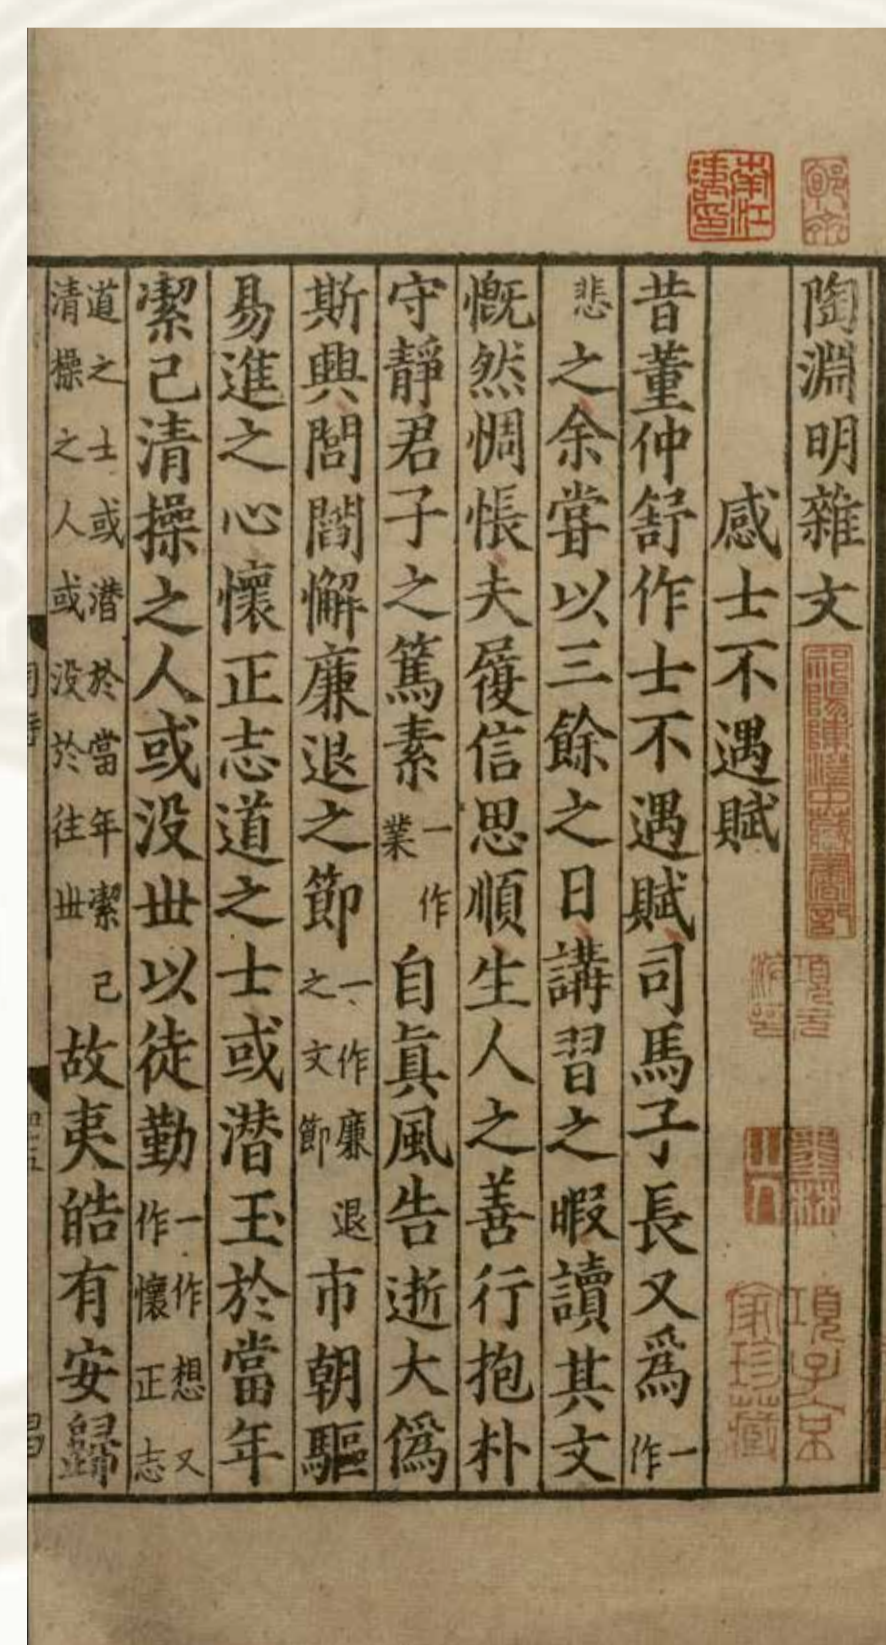 陶淵明雜文
感士不遇賦
昔董仲舒作士不遇賦司馬子長又爲一作
悲之余甞以三餘之日講習之暇讀其文
慨然惆悵夫履信思順生人之善行抱朴
守靜君子之篤素一作業自真風告逝大偽
斯興閭閻懈廉退之節一作廉退之文節市朝驅
易進之心懷正志道之士或潛玉於當年
潔己清操之人或没丗以徒勤一作想又作懷正志
道之士或潛於當年潔己清操之人或没於往丗故夷皓有安歸
項子京家珍藏